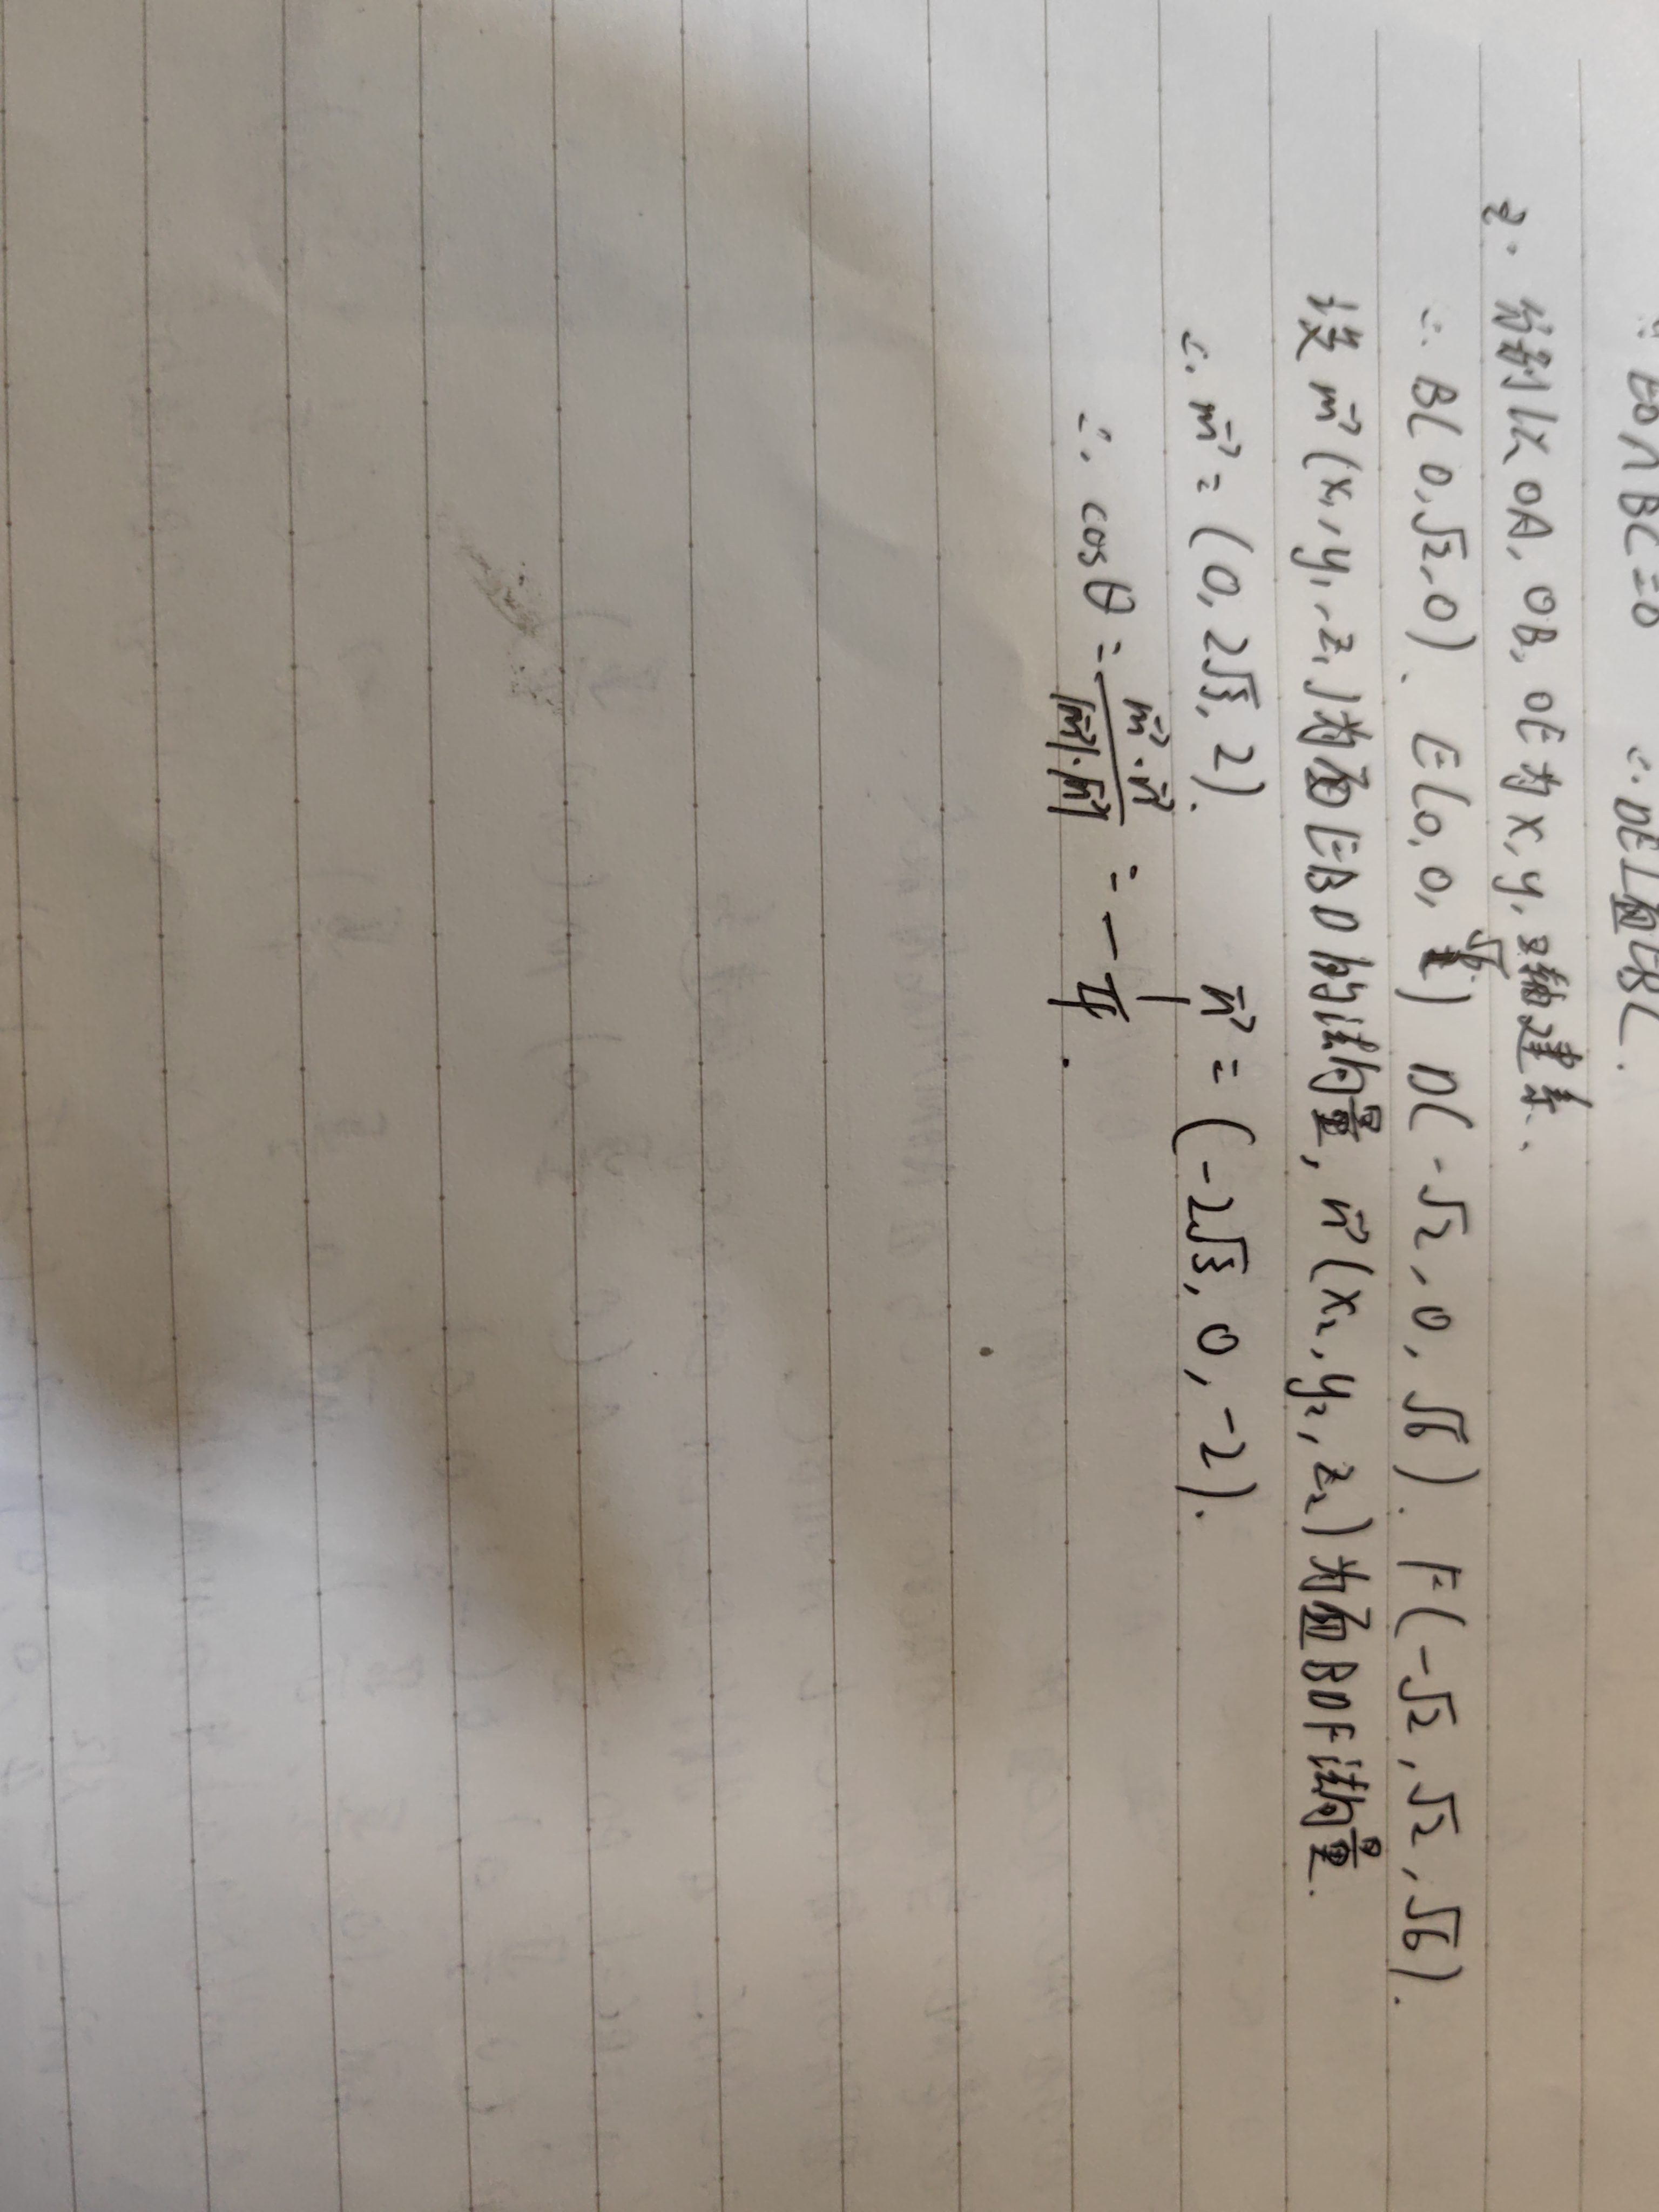 ∵ EO∩BC=O ∴ DE⊥面EBC.
2. 分别以 OA, OB, OE 为 x, y, z轴建系.
∴ B(0,√2,0). E(0,0,√6) D(-√2,0,√6). F(-√2,√2,√6).
设 m⃗(x₁,y₁,z₁)为面EBD的法向量, n⃗(x₂,y₂,z₂)为面BDF法向量.
∴ m⃗=(0,2√3,2). n⃗=(-2√3,0,-2).
∴ cosθ = m⃗·n⃗/|m⃗|·|n⃗| = -1/4.